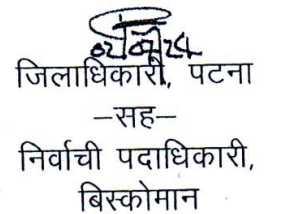 02/07/24
जिलाधिकारी, पटना
–सह–
निर्वाची पदाधिकारी,
बिस्कोमान